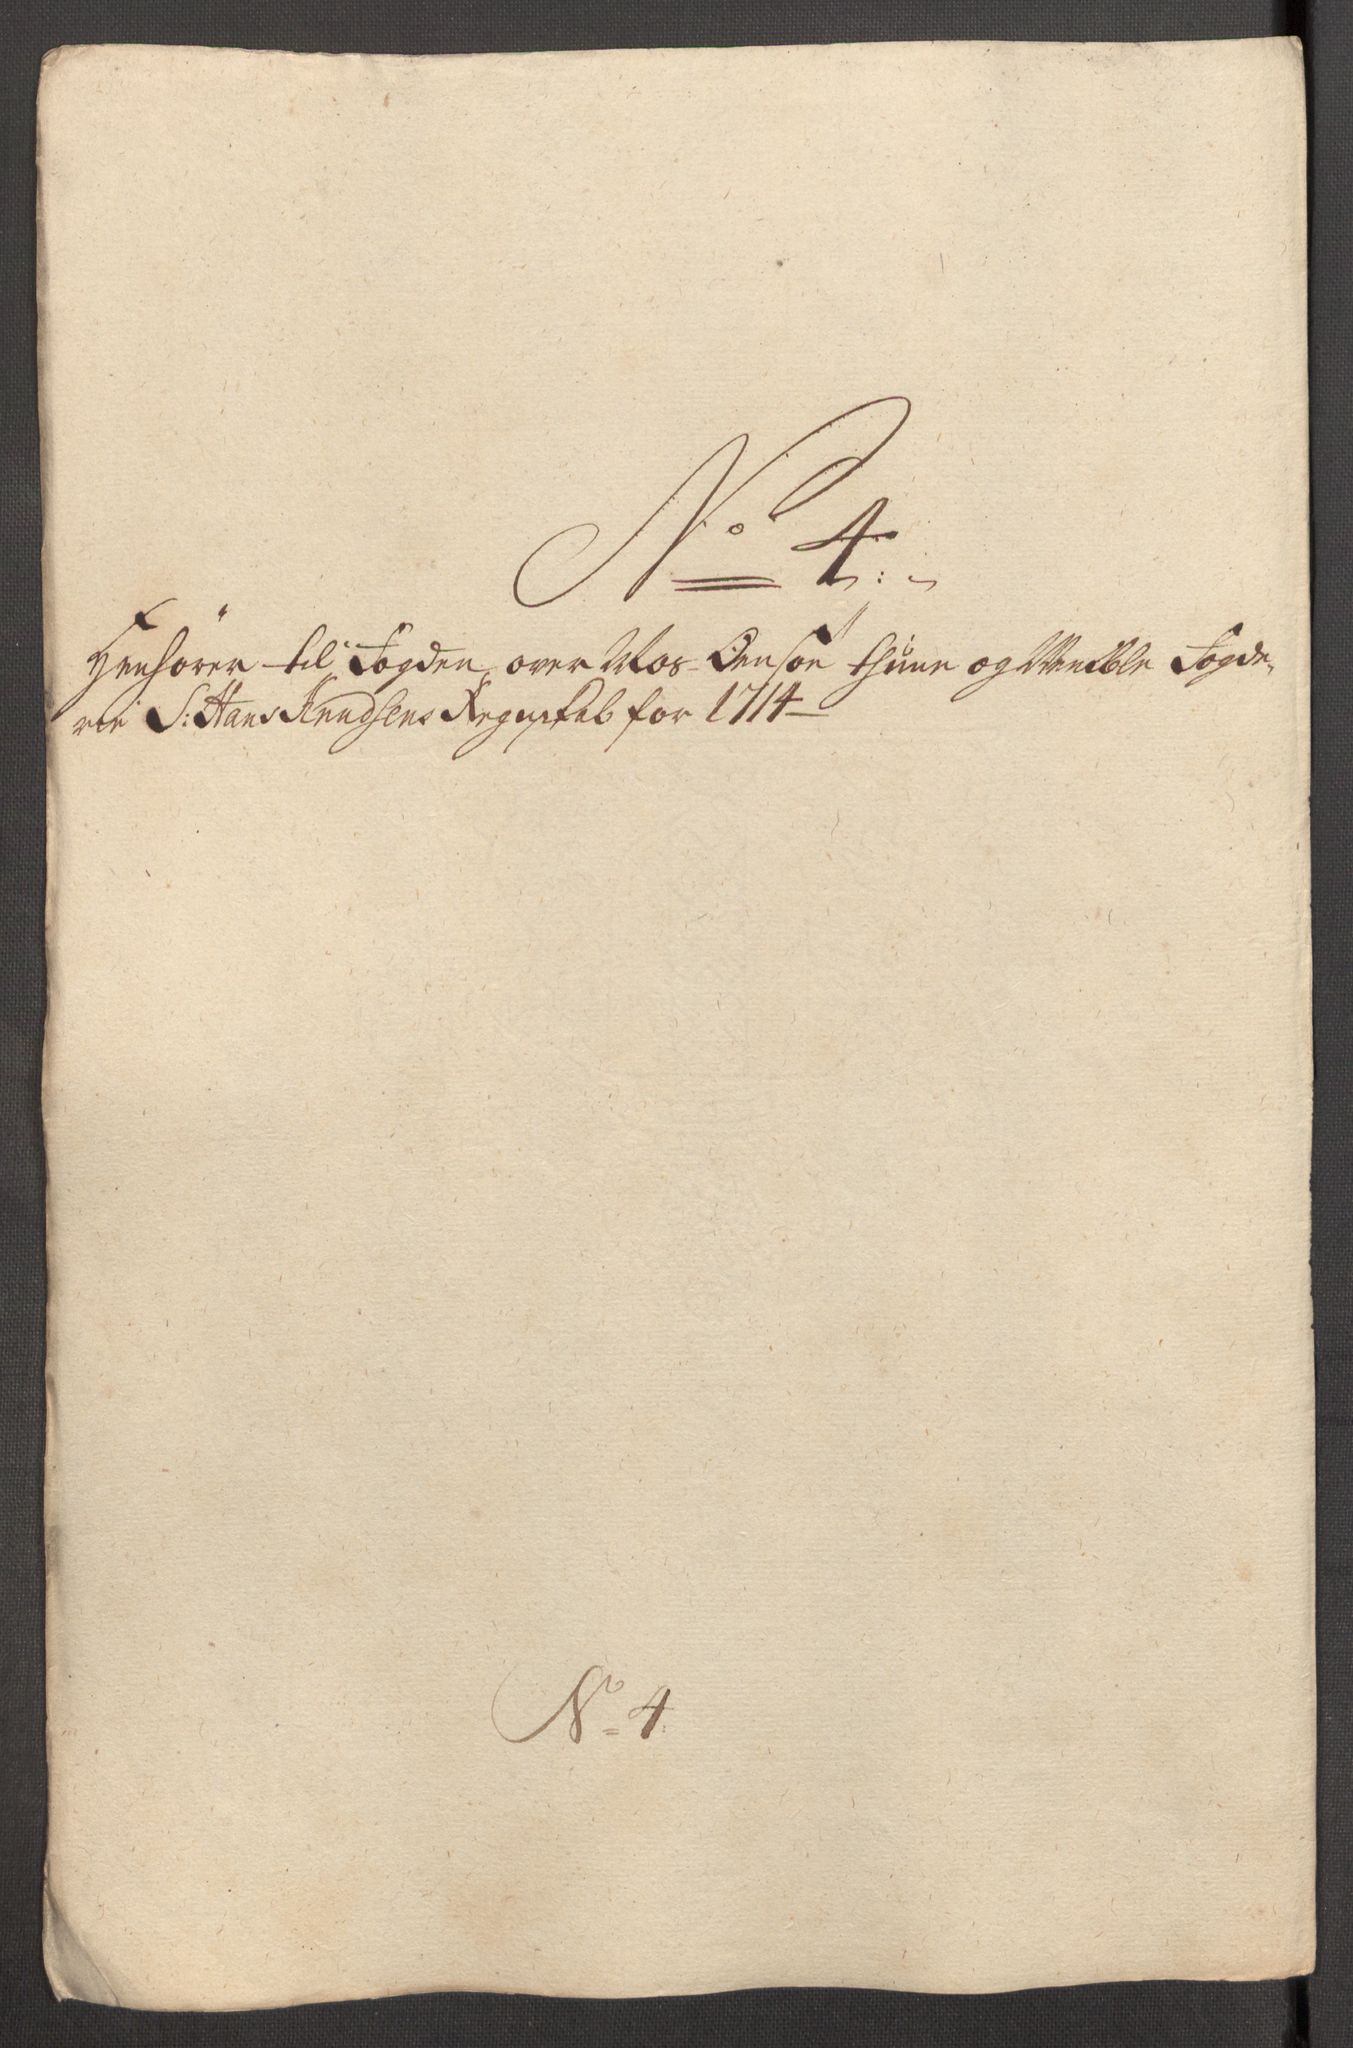 No 4.
Henhører til Fogden over Mos Onsøe thune og Wemble Fogde-
rie Sr: Hans Knudsens Regnskab for 1714
No 4.